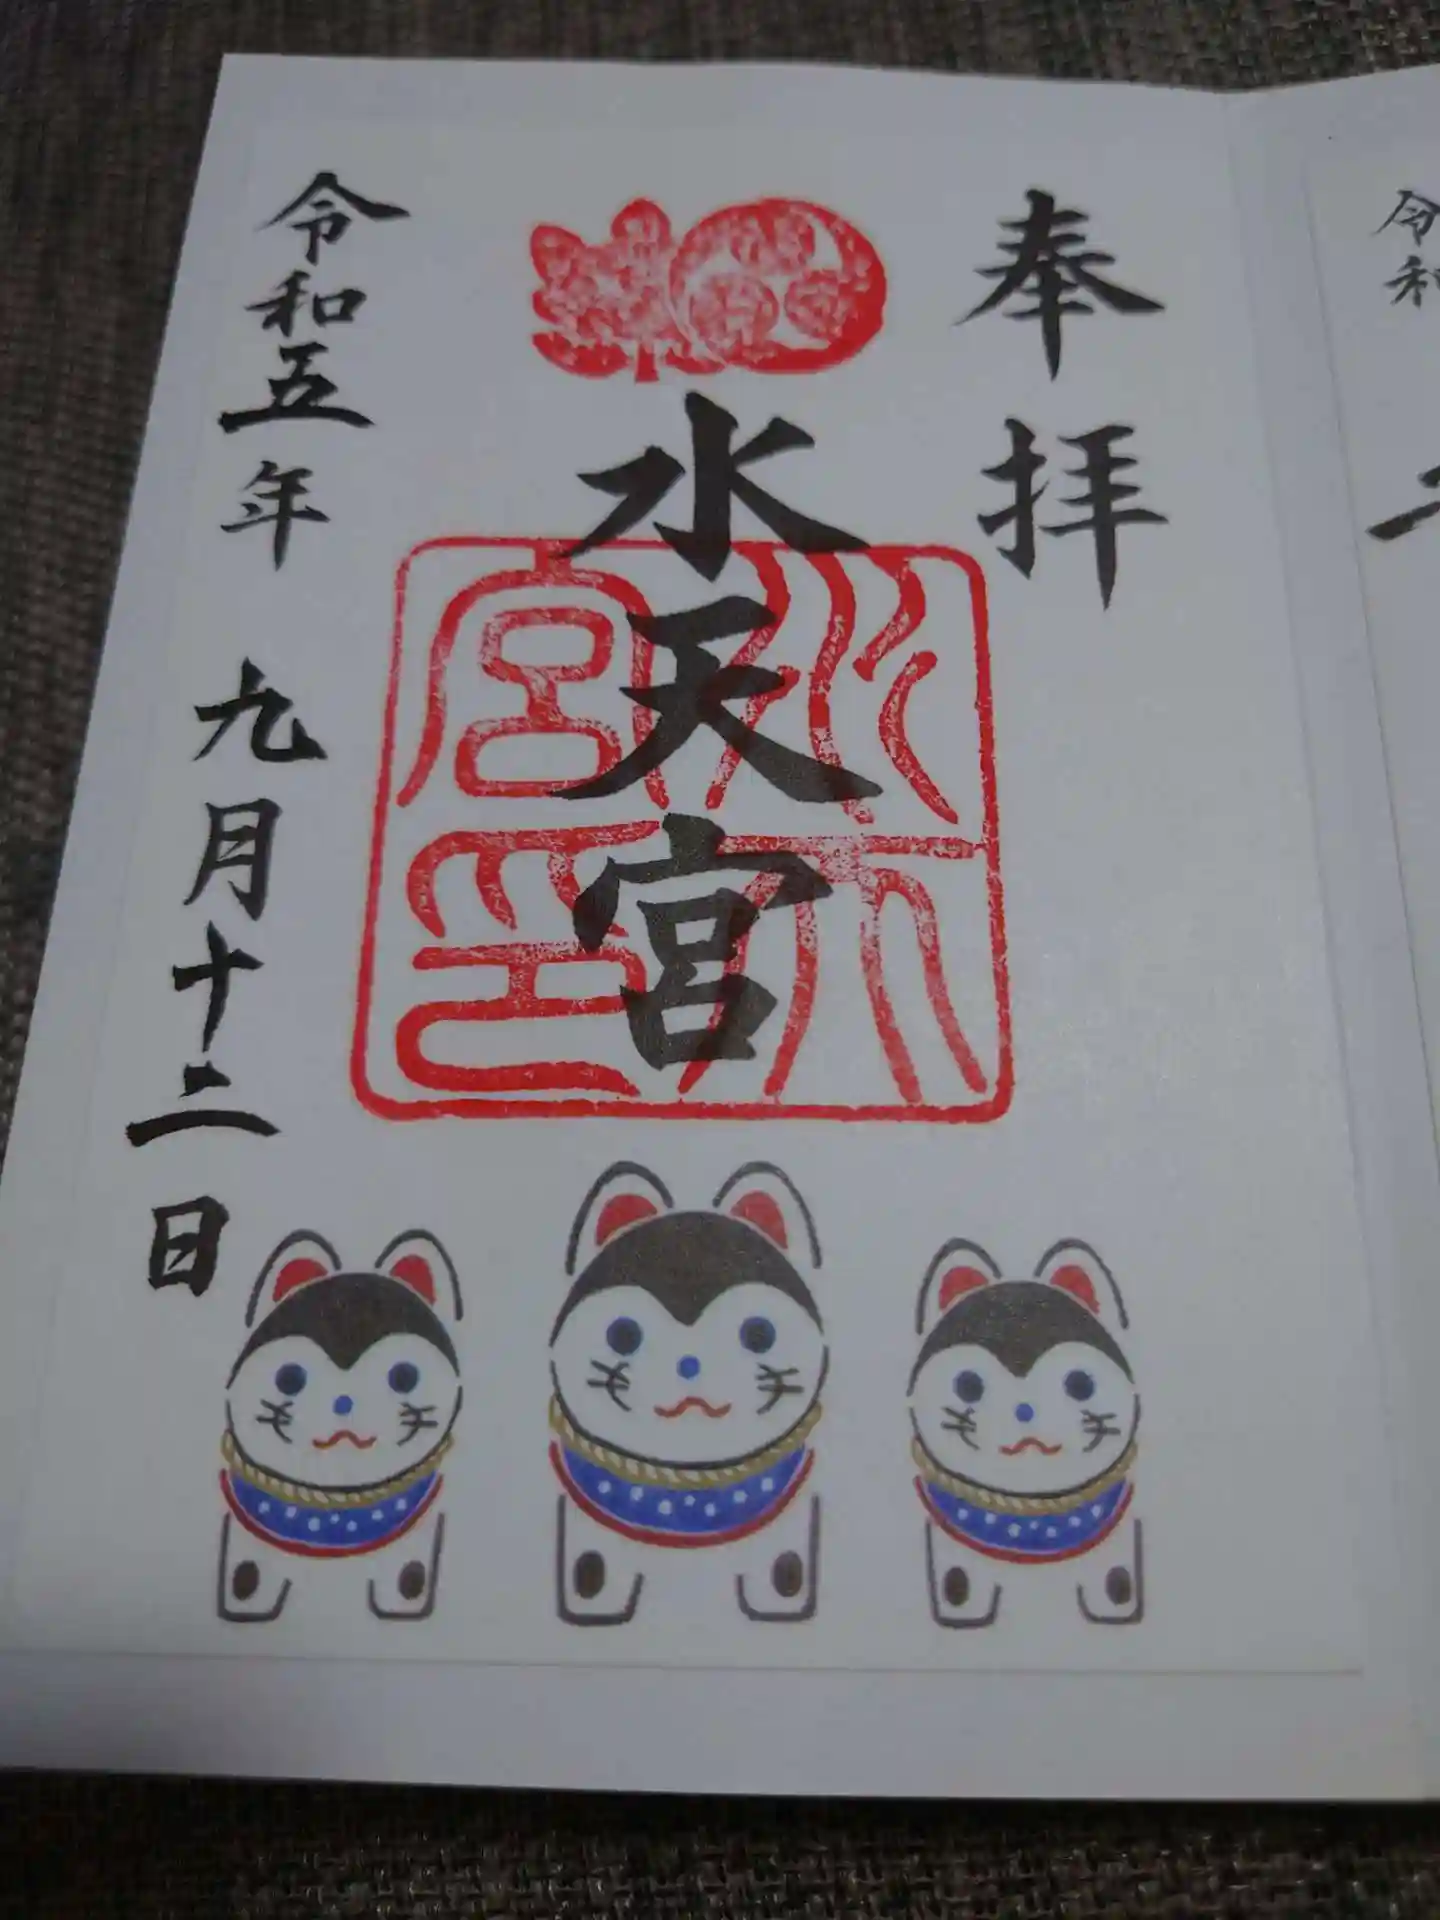 令和
奉拝
水天宮
水天宮印
令和五年 九月十二日